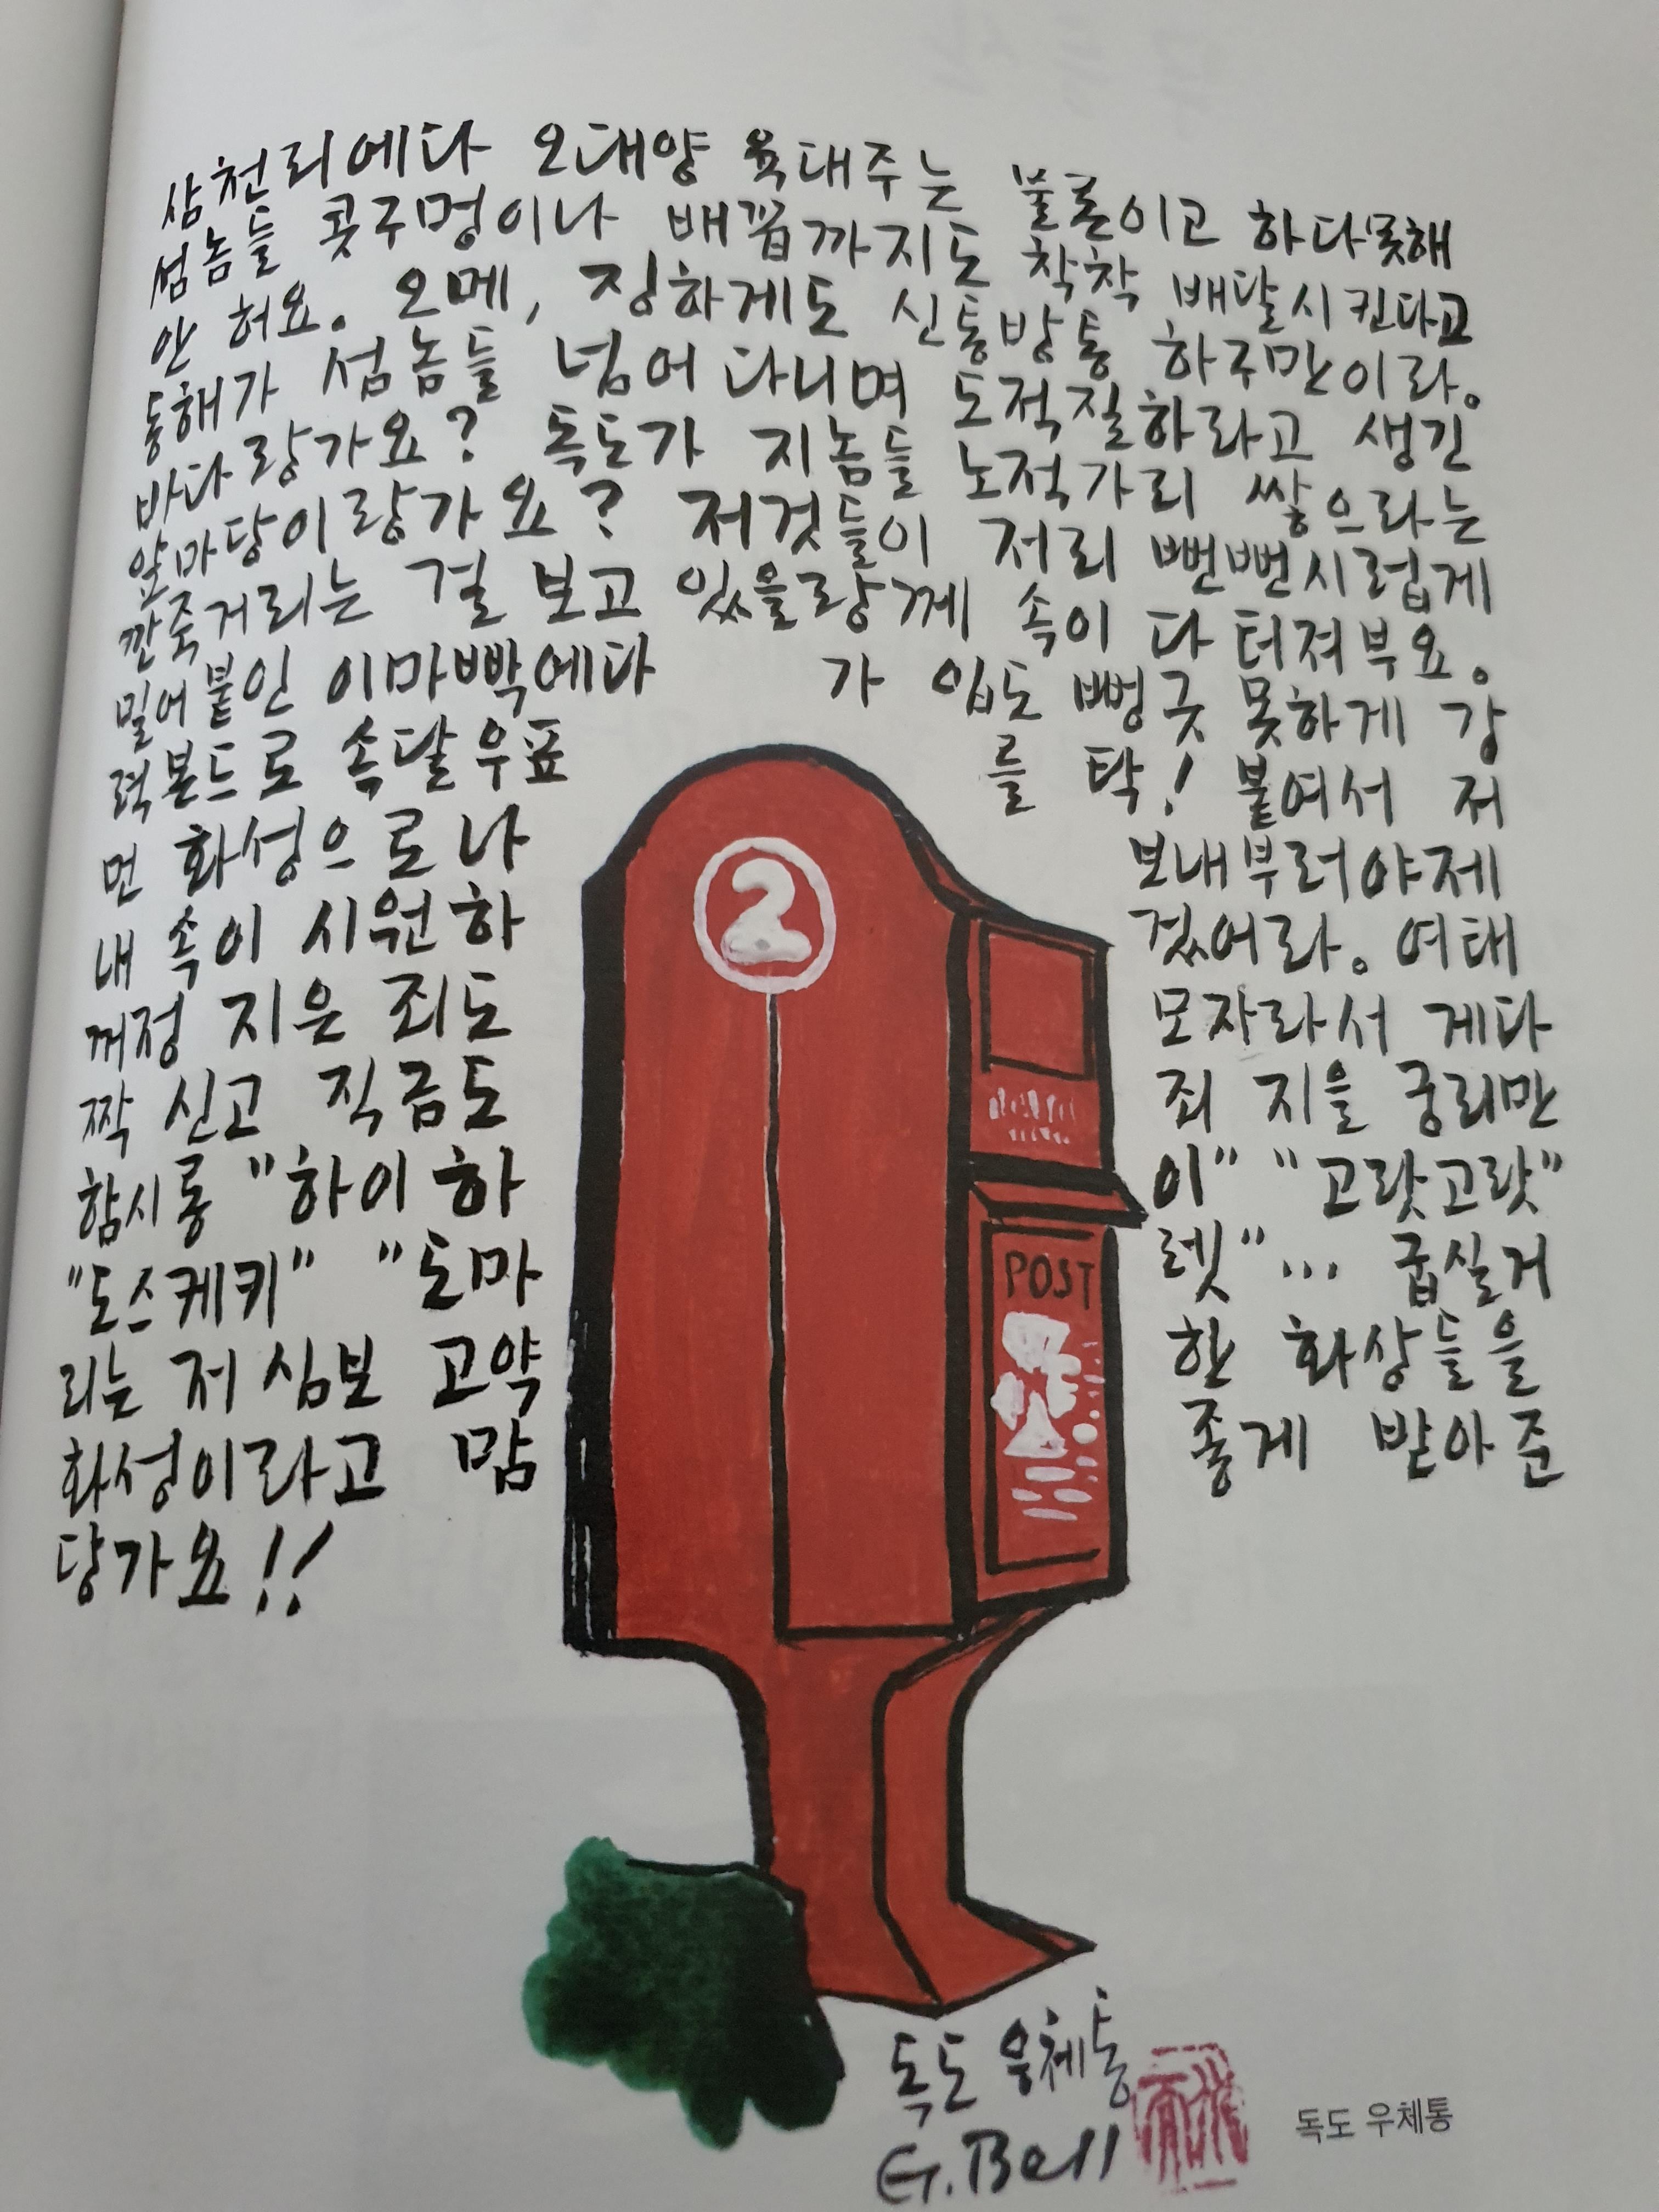 삼천리에다 오대양 육대주는 물론이고 하다못해
섬놈들 콧구멍이나 배꼽까지도 착착 배달시킨다고
안 허요. 오메, 징하게도 신통방통 하구만이라.
동해가 섬놈들 넘어 다니며 도적질하라고 생긴
바다랑가요? 독도가 지놈들 노적가리 쌓으라는
앞마당이랑가요? 저것들이 저리 뻔뻔시럽게
깐죽거리는 걸 보고 있을랑께 속이 다 터져부요.
밀어붙인 이마빡에다가 입도 뻥긋 못하게 강
력본드로 속달우표를 탁! 붙여서 저
먼 화성으로나 보내부러야제
내 속이 시원하겄어라. 여태
꺼정 지은 죄도 모자라서 게다
짝 신고 직금도 죄 지을 궁리만
함시롱 "하이 하이" "고랏고랏"
"도스케키" "도마렛"... 굽실거
리는 저 심보 고약한 화상들을
화성이라고 맘 좋게 받아준
당가요!!
2
POST
독도 우체통
G.Bell
독도 우체통